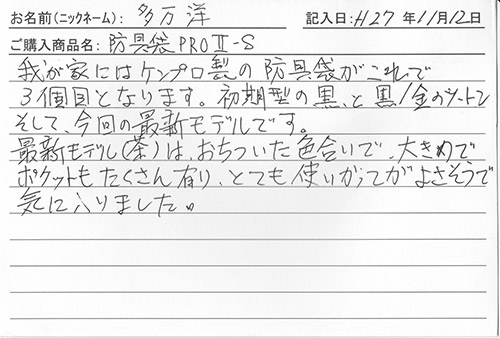 お名前(ニックネーム): 多万洋 記入日: H27 年 11月 12日
ご購入商品名: 防具袋PROⅡ-S
我が家にはケンプロ製の防具袋がこれで
3個目となります。初期型の黒、と黒/金のツートン
そして、今回の最新モデルです。
最新モデル(茶)は、おちついた色合いで、大きめで
ポケットもたくさん有り、とても使いがってがよさそうで
気に入りました。